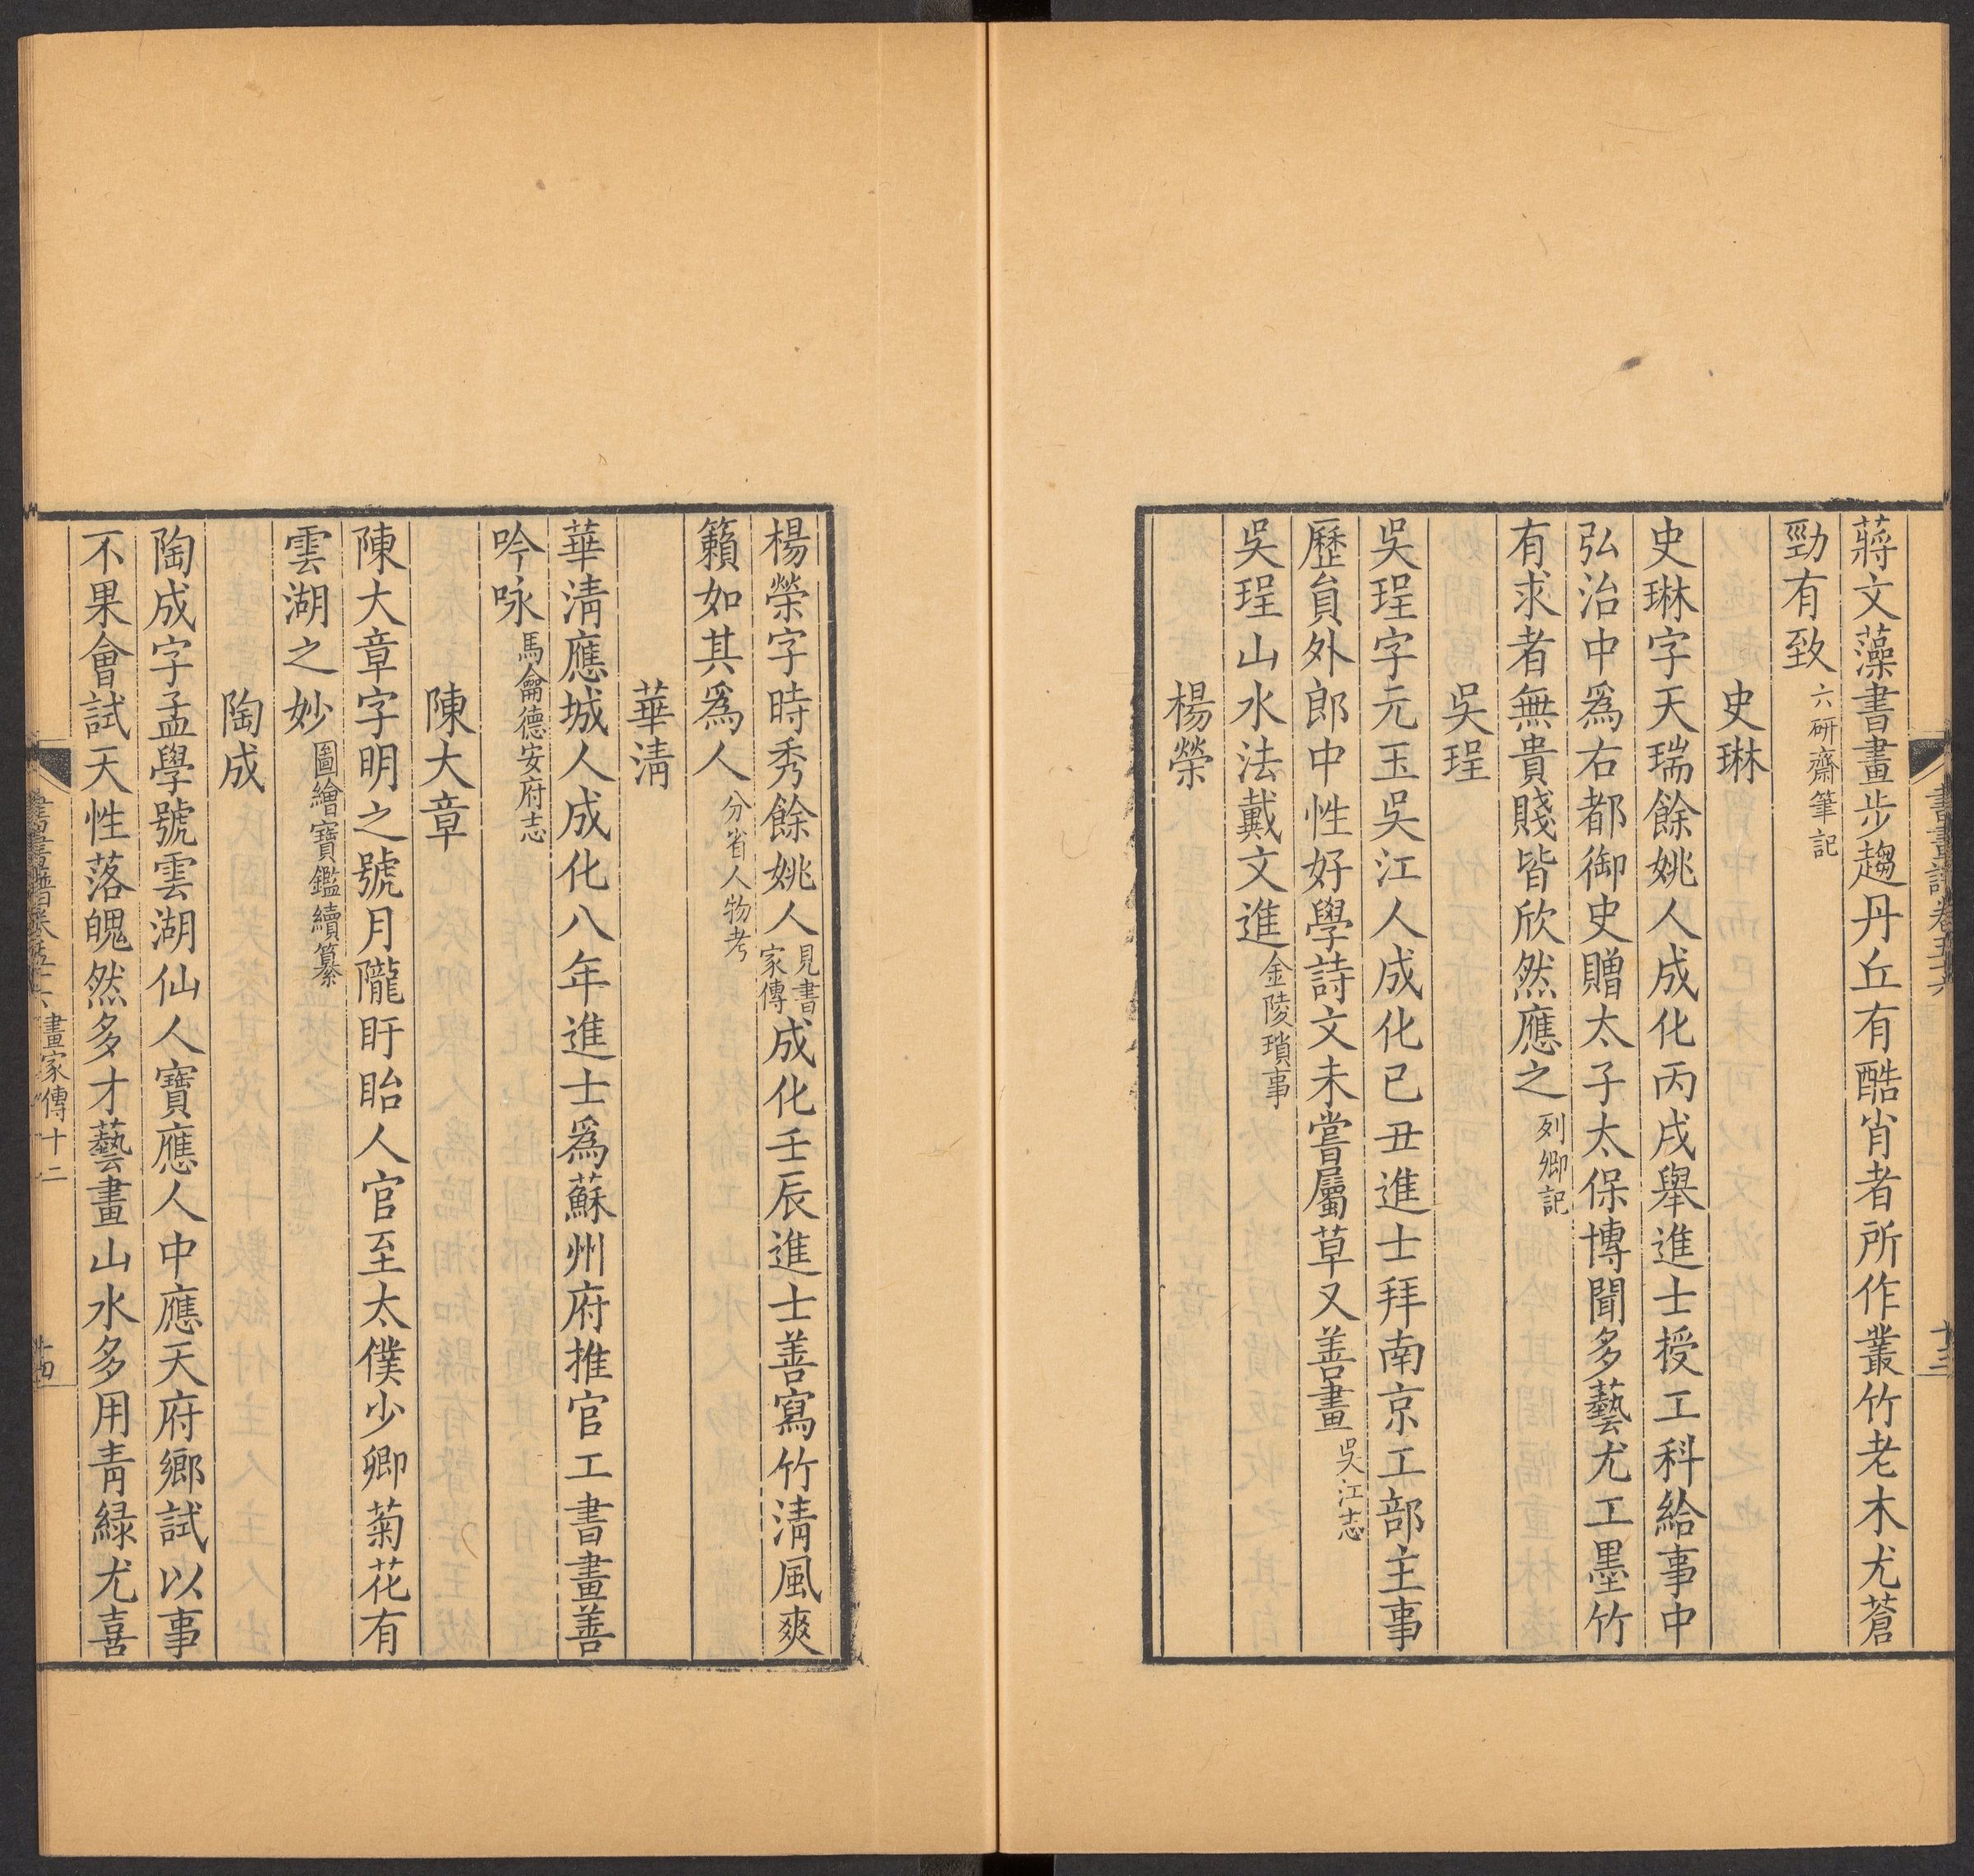 蔣文藻書畫步趨丹丘有酷肖者所作叢竹老木尤蒼
勁有致六研齋筆記
史琳
史琳字天瑞餘姚人成化丙戌舉進士授工科給事中
弘治中爲右都御史贈太子太保博聞多藝尤工墨竹
有求者無貴賤皆欣然應之列卿記
吳珵
吳珵字元玉吳江人成化己丑進士拜南京工部主事
歷員外郎中性好學詩文未嘗屬草又善畫吳江志
吳珵山水法戴文進金陵瑣事
楊榮
楊榮字時秀餘姚人見書家傳成化壬辰進士善寫竹淸風爽
籟如其爲人分省人物考
華淸
華淸應城人成化八年進士爲蘇州府推官工書畫善
吟咏馬龠德安府志
陳大章
陳大章字明之號月隴盱眙人官至太僕少卿菊花有
雲湖之妙圖繪寶鑑續纂
陶成
陶成字孟學號雲湖仙人寶應人中應天府鄉試以事
不果會試天性落魄然多才藝畫山水多用靑綠尤喜
畫家傳十二